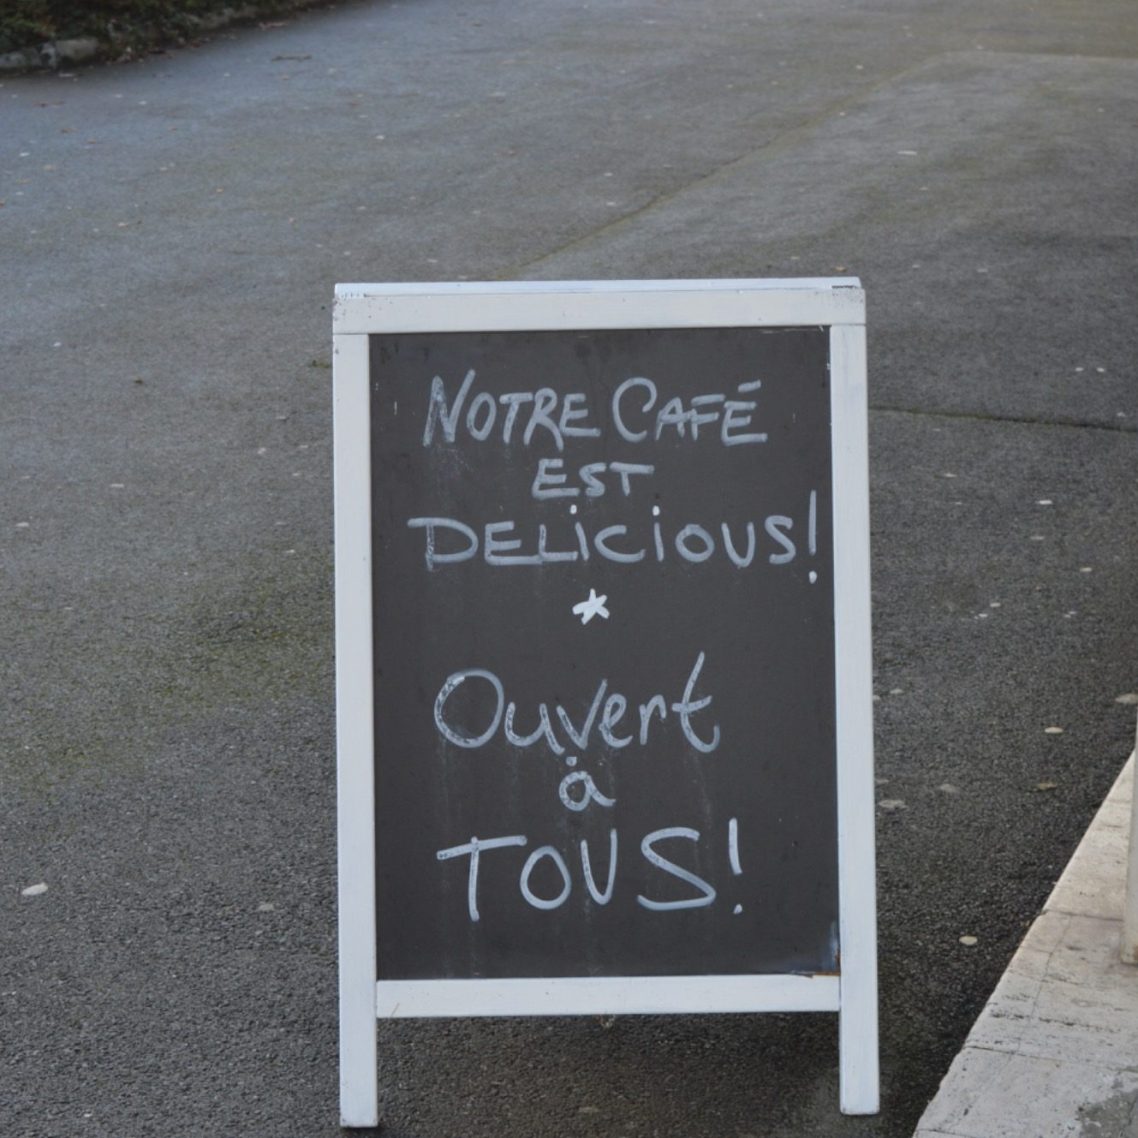 NOTRE CAFÉ
EST
DELiCiOUS!
Ouvert
à
TOUS!